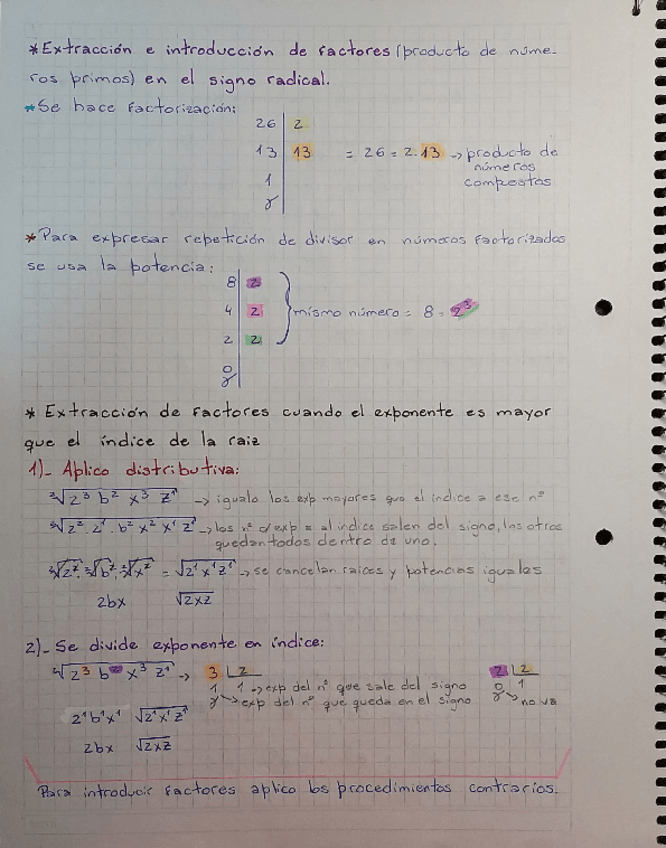 *Extracción e introducción de factores (producto de núme-
ros primos) en el signo radical.
*Se hace factorización:
26 | 2
13 | 13 = 26 = 2.13 → producto de
números
compostos
1
*Para expresar repetición de divisor en números factorizados
se usa la potencia:
8 | 2
4 | 2 } mismo número = 8 = 2³
2 | 2
0
* Extracción de factores cuando el exponente es mayor
que el índice de la raiz
1)- Aplico distributiva:
²√2³ b² x³ z¹ → igualo los exp mayores que el indice a ese nº
²√2². 2¹. b² x² x¹ z¹ → los nº c/exp = al indice salen del signo, los otros
quedan todos dentro de uno.
²√2². ²√b². ²√x² = √2¹x¹z¹ → se cancelan raíces y potencias iguales
2bx √2xz
2)- Se divide exponente en índice:
²√2³ b² x³ z¹ → 3 | 2 2 | 2
1 1 → exp del nº que sale del signo 0 1
→ exp del nº que queda en el signo → no va
2¹b¹x¹ √2¹x¹z¹
2bx √2xz
Para introducir factores aplico los procedimientos contrarios.